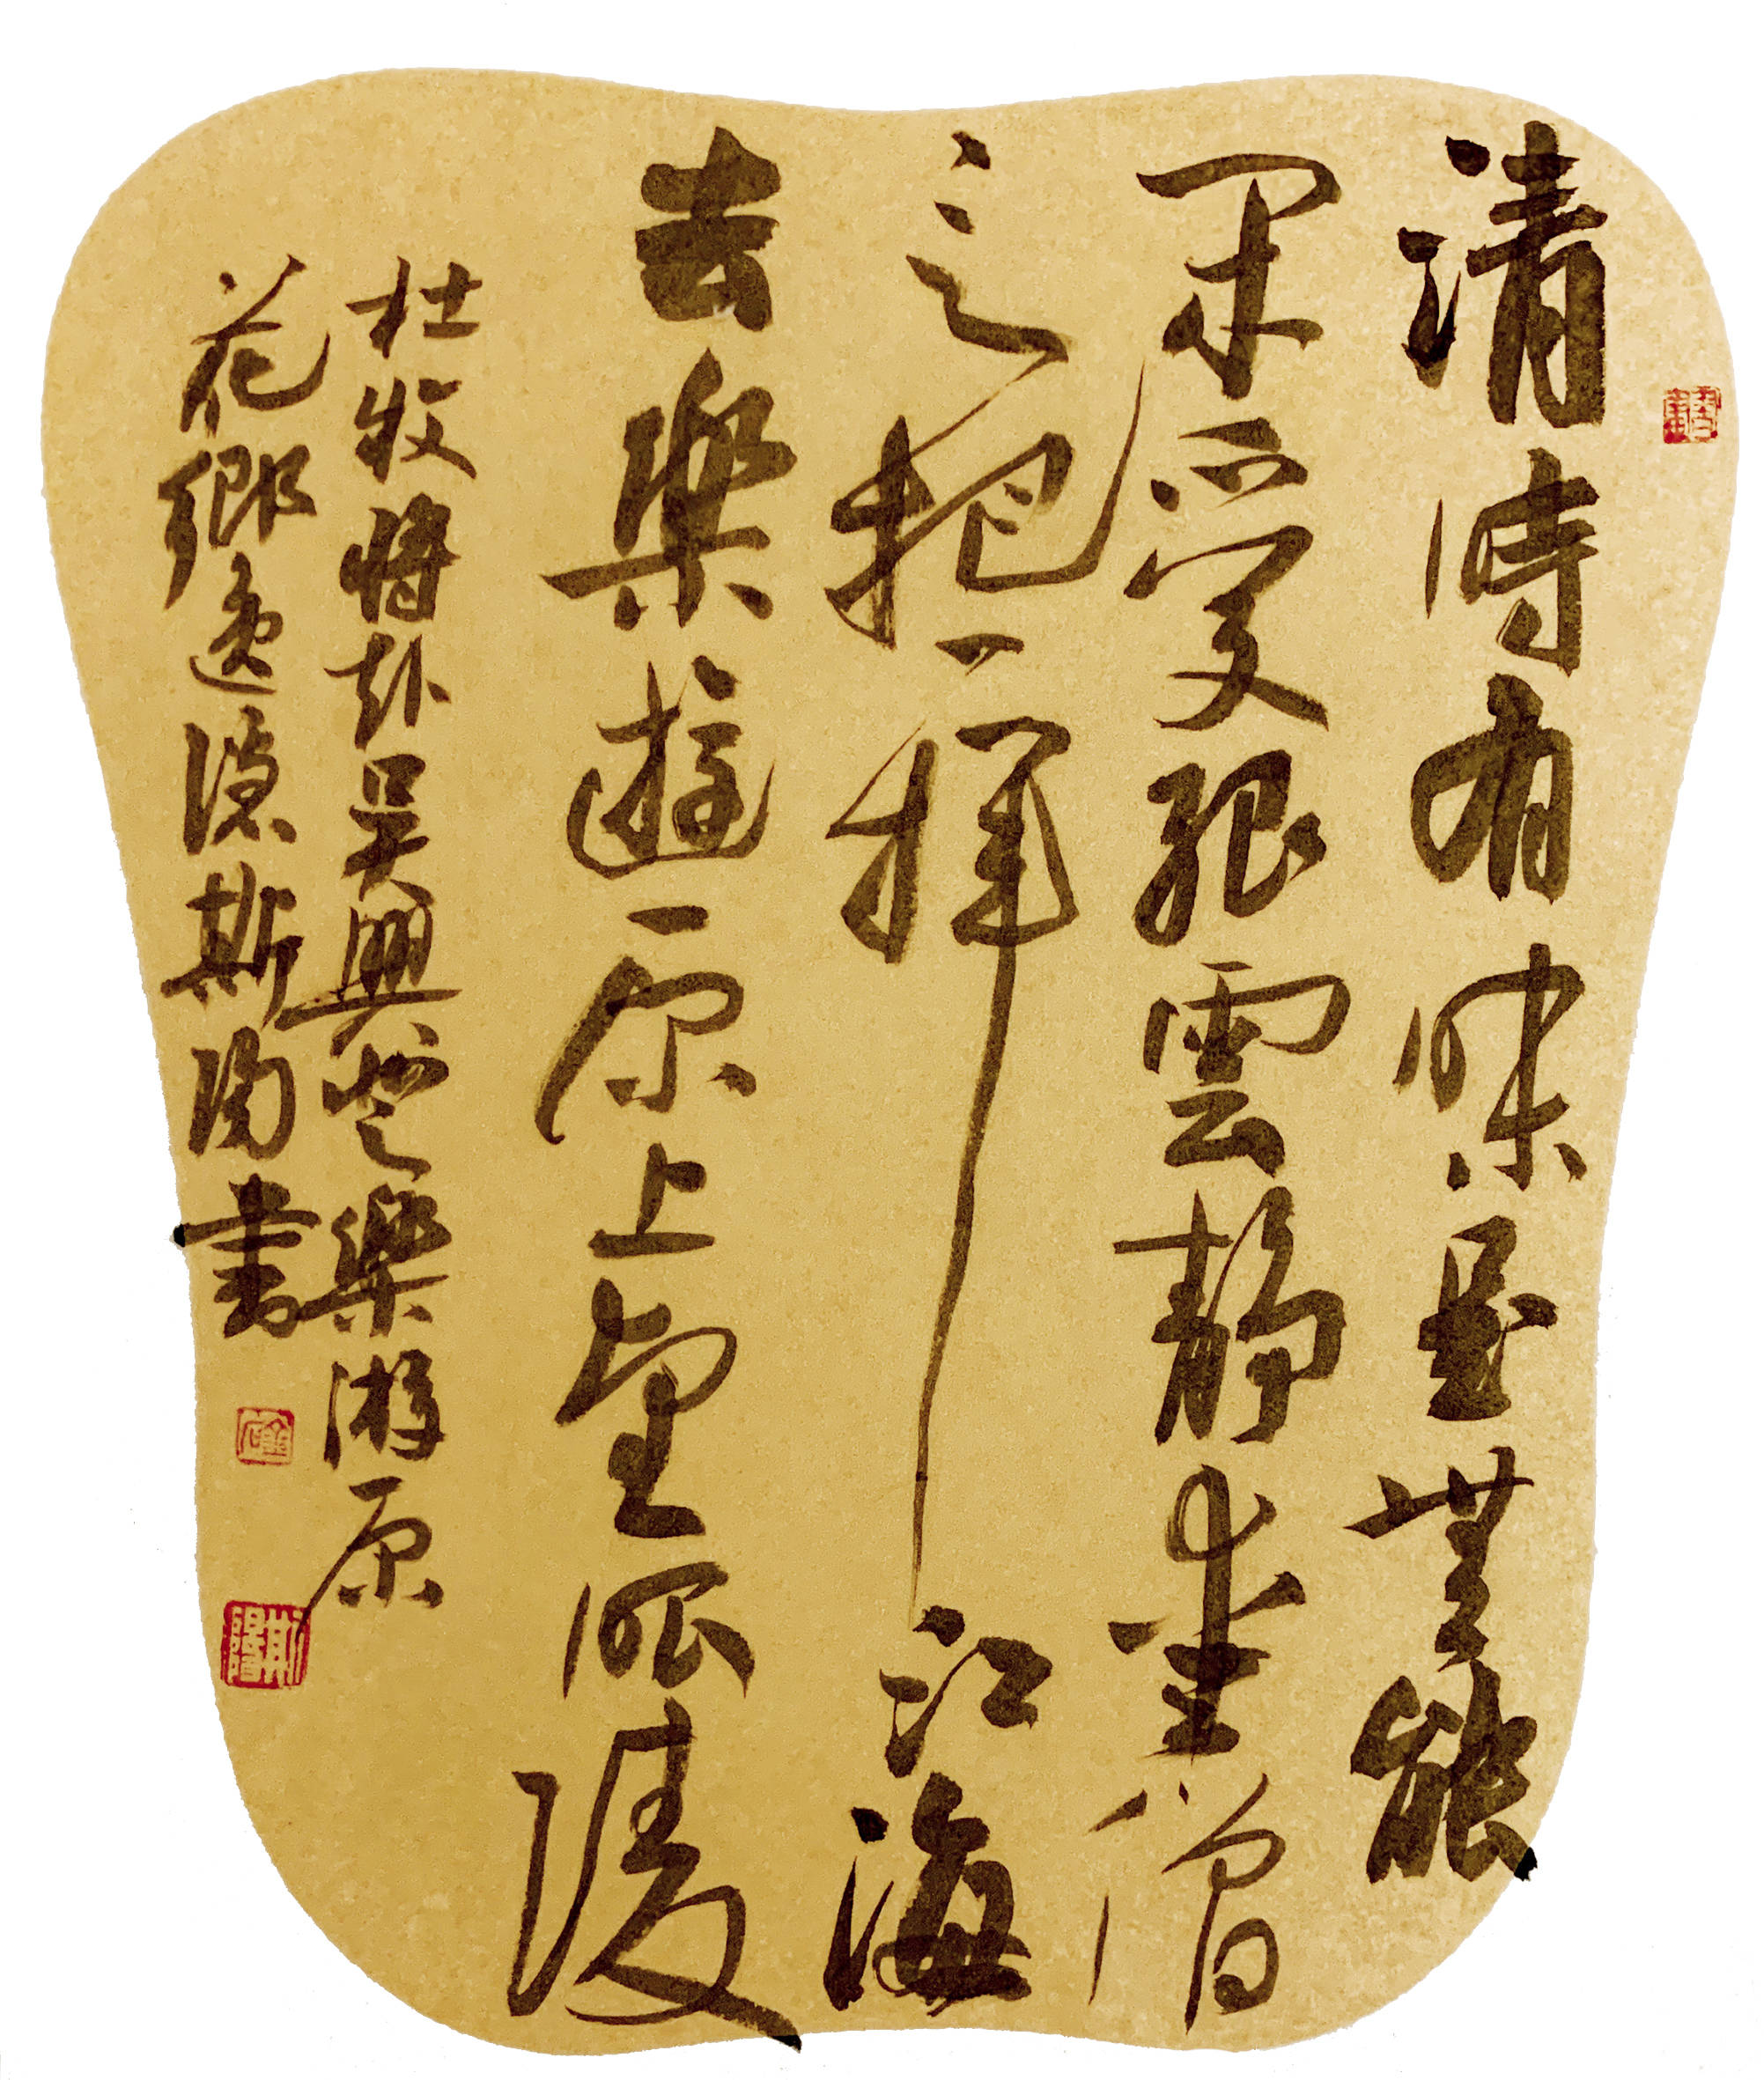 清時有味是無能
閑愛孤雲靜愛僧
欲把一揮江海
去樂遊原上望昭陵
杜牧將赴吳興登樂游原
花鄉逸隱斯陽書
斯陽